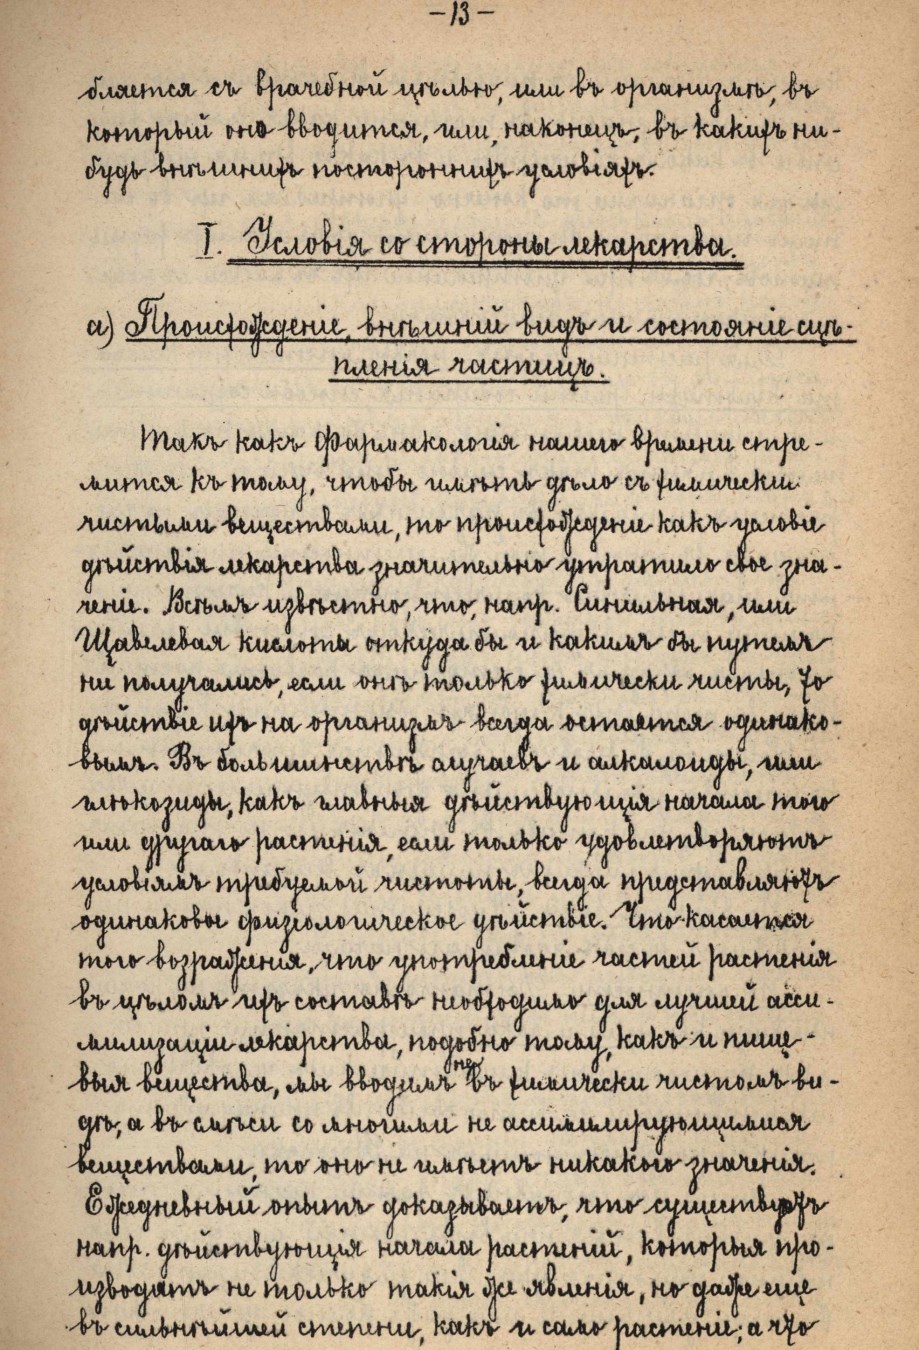 -13-
бляется съ врачебной цѣлью, или въ организмъ, въ
который оно вводится, или, наконецъ, въ какихъ ни-
будь внѣшнихъ постороннихъ условіяхъ.
I. Условія со стороны лекарства.
а) Происхожденіе, внѣшній видъ и состояніе сцѣ-
пленія частицъ.
Такъ какъ Фармакологія нашего времени стре-
мится къ тому, чтобы имѣть дѣло съ химически
чистыми веществами, то происхожденіе какъ условіе
дѣйствія лекарства значительно утратило свое зна-
ченіе. Всѣмъ извѣстно, что, напр. Синильная, или
Щавелевая кислоты откуда бы и какимъ бы путемъ
ни получались, если онѣ только химически чисты, то
дѣйствіе ихъ на организмъ всегда остается одинако-
вымъ. Въ большинствѣ случаевъ и алкалоиды, или
глюкозиды, какъ главныя дѣйствующія начала того
или другаго растенія, если только удовлетворяютъ
условіямъ требуемой чистоты, всегда представляютъ
одинаковое физіологическое дѣйствіе. Что касается
того возраженія, что употребленіе частей растенія
въ цѣломъ ихъ составѣ необходимо для лучшей асси-
милизаціи лекарства, подобно тому, какъ и пище-
выя вещества, мы вводимъ не въ химически чистомъ ви-
дѣ, а въ смѣси со многими не ассимилирующимися
веществами, то оно не имѣетъ никакого значенія.
Ежедневный опытъ доказываетъ, что существуютъ
напр. дѣйствующія начала растеній, которыя про-
изводятъ не только такія же явленія, но даже еще
въ сильнѣйшей степени, какъ и само растеніе; а что